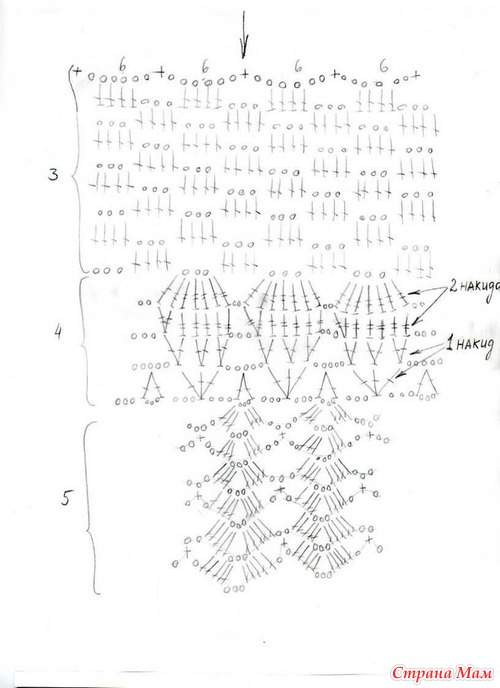 6 6 6 6
3
4
2 накида
1 накид
5
Страна Мам